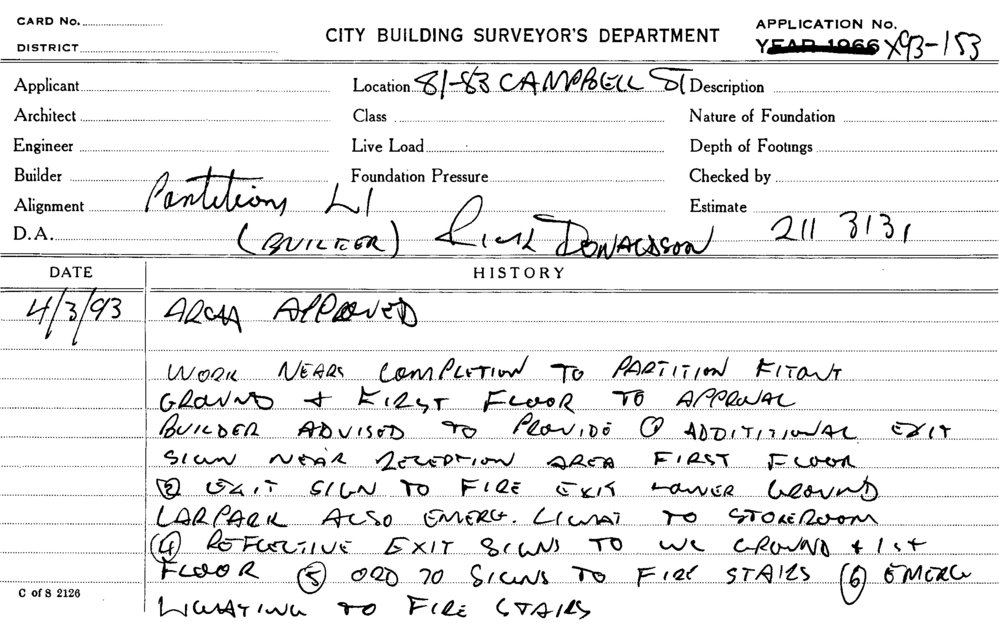 CARD No.
DISTRICT
CITY BUILDING SURVEYOR'S DEPARTMENT
APPLICATION No.
YEAR 1966 X93-153
Applicant
Location 81-83 CAMPBELL ST
Description
Architect
Class
Nature of Foundation
Engineer
Live Load
Depth of Footings
Builder
Foundation Pressure
Checked by
Alignment Partitions L1
Estimate
D.A. (BUILDER) Rick DONALDSON 211 3131
DATE
HISTORY
4/3/93 APPROVED
WORK NEARS COMPLETION TO PARTITION FITOUT
GROUND + FIRST FLOOR TO APPROVAL
BUILDER ADVISED TO PROVIDE (1) ADDITIONAL EXIT
SIGN NEAR RECEPTION AREA FIRST FLOOR
EXIT SIGN TO FIRE EXIT LOWER GROUND
CARPARK ALSO EMERG. LIGHT TO STOREROOM
(4) REFLECTIVE EXIT SIGNS TO WC GROUND + 1st
FLOOR (5) ORD 70 SIGNS TO FIRE STAIRS (6) EMERG
LIGHTING TO FIRE STAIRS
C of S 2126